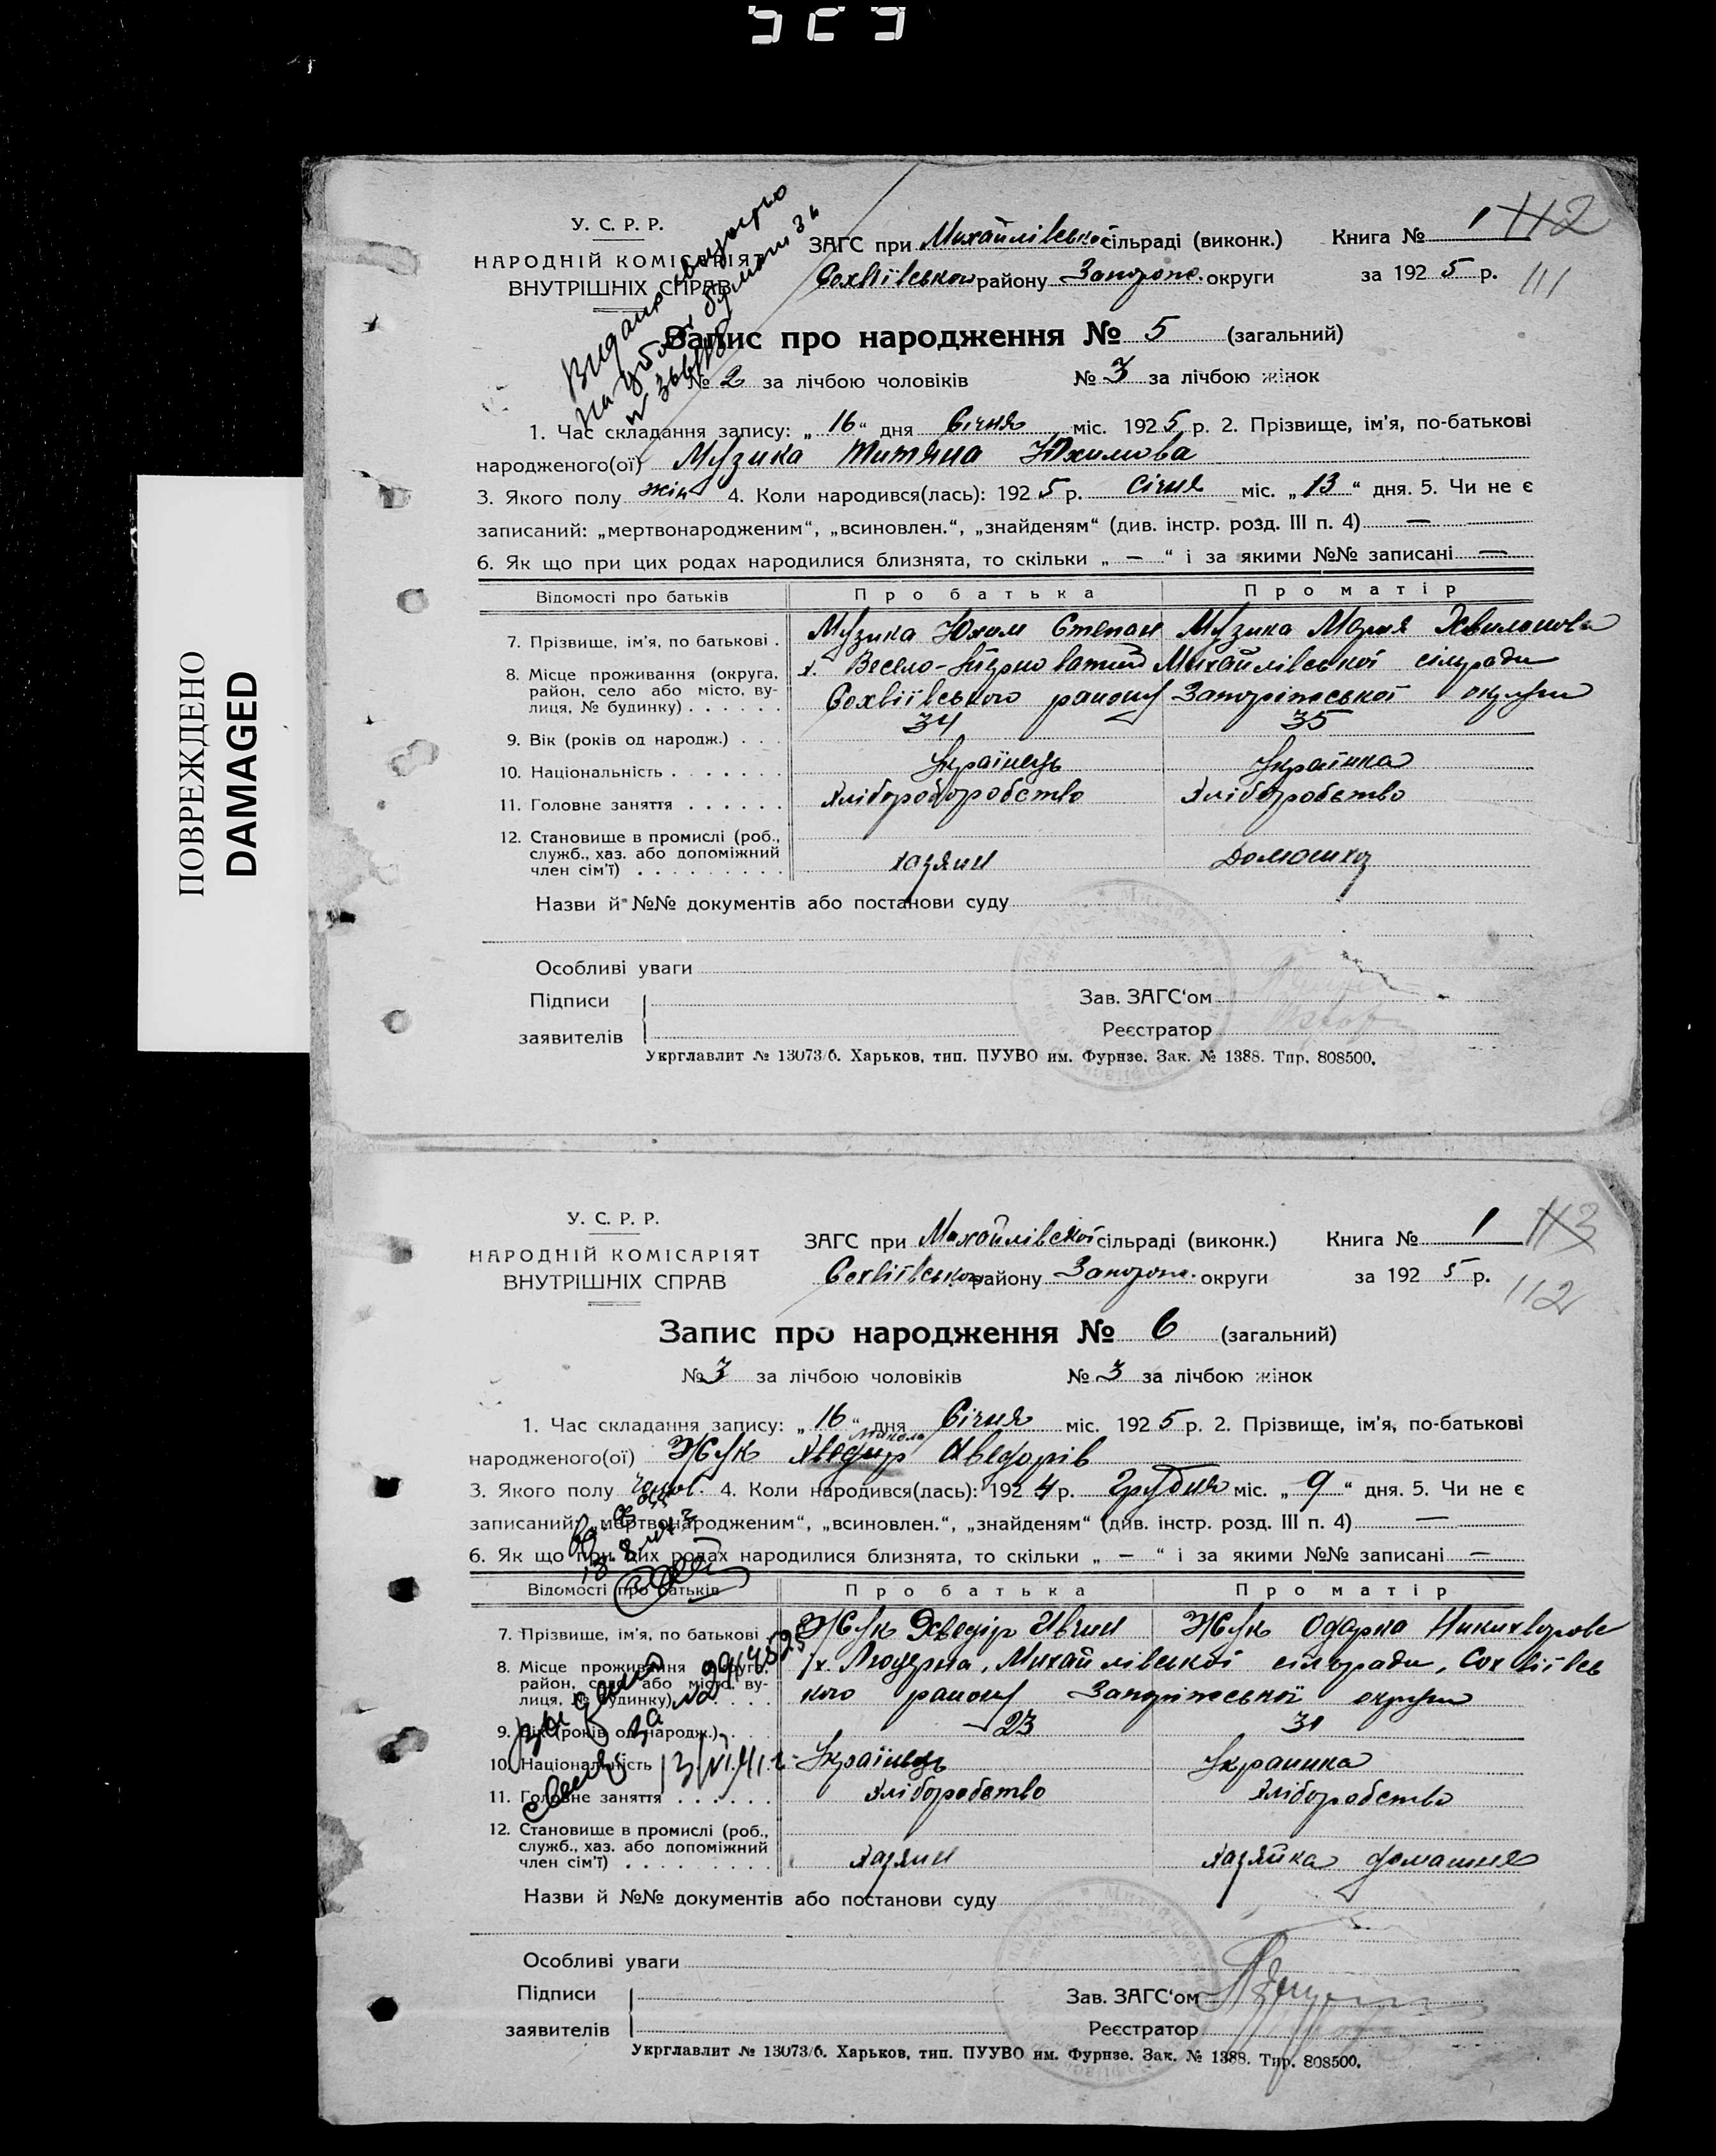 ПОВРЕЖДЕНО
DAMAGED
У. С. Р. Р.
НАРОДНІЙ КОМІСАРІЯТ
ВНУТРІШНІХ СПРАВ
ЗАГС при Михайлівської сільраді (виконк.)
Софіївського району Запорож. округи
Книга № 1
за 1925 р.
112
111
Запис про народження № 5 (загальний)
№ 2 за лічбою чоловіків № 3 за лічбою жінок
1. Час складання запису: „16“ дня Січня міс. 1925 р. 2. Прізвище, ім'я, по-батькові
народженого(ої) Музика Титяна Юхимова
3. Якого полу жін 4. Коли народився(лась): 1925 р. Січня міс. „13“ дня. 5. Чи не є
записаний: „мертвонародженим“, „всиновлен.“, „знайденям“ (див. інстр. розд. III п. 4) —
6. Як що при цих родах народилися близнята, то скільки „ — “ і за якими №№ записані —
Відомості про батьків Про батька Про матір
7. Прізвище, ім'я, по батькові . Музика Юхим Степан Музика Мария
8. Місце проживання (округа, х. Весело- Михайлівської сілуради
район, село або місто, ву-
лиця, № будинку) . . . . . . Сохвіївського району Запоріжської округи
9. Вік (років од народж.) . . . 34 35
10. Національність . . . . . . . Українець Українка
11. Головне заняття . . . . . . Хліборобство
12. Становище в промислі (роб.,
служб., хаз. або допоміжний
член сім'ї) . . . . . . . . . хазяин
Назви й №№ документів або постанови суду
Особливі уваги
Підписи
заявителів
Зав. ЗАГС‘ом
Реєстратор
Укрглавлит № 13073/б. Харьков, тип. ПУУВО им. Фурнзе. Зак. № 1388. Тир. 808500.
У. С. Р. Р.
НАРОДНІЙ КОМІСАРІЯТ
ВНУТРІШНІХ СПРАВ
ЗАГС при Михайлівської сільраді (виконк.)
Сохвіївського району Запорож. округи
Книга № 1
за 1925 р.
113
112
Запис про народження № 6 (загальний)
№ 3 за лічбою чоловіків № 3 за лічбою жінок
1. Час складання запису: „16“ дня Січня міс. 1925 р. 2. Прізвище, ім'я, по-батькові
Микола
народженого(ої) Жук Хведир Хведорів
3. Якого полу чолов. 4. Коли народився(лась): 1924 р. Грудня міс. „9“ дня. 5. Чи не є
записаний: „мертвонародженим“, „всиновлен.“, „знайденям“ (див. інстр. розд. III п. 4) —
6. Як що при цих родах народилися близнята, то скільки „ — “ і за якими №№ записані —
Відомості про батьків Про батька Про матір
7. Прізвище, ім'я, по батькові . Жук Хведір Жук Одарка
8. Місце проживання (округа, х. Люцерна, Михайлівської сільради, Сохвіївсь
район, село або місто, ву-
лиця, № будинку) . . . . кого району Запоріжської округи
9. Вік (років од народж.) . . . 23 31
10. Національність Українець Украинка
11. Головне заняття . . . . . . Хліборобство Хліборобство
12. Становище в промислі (роб.,
служб., хаз. або допоміжний
член сім'ї) . . . . . . . . . Хазяин хазяйка домашня
Назви й №№ документів або постанови суду
Особливі уваги
Підписи
заявителів
Зав. ЗАГС‘ом
Реєстратор
Укрглавлит № 13073/б. Харьков, тип. ПУУВО им. Фурнзе. Зак. № 1388. Тир. 808500.